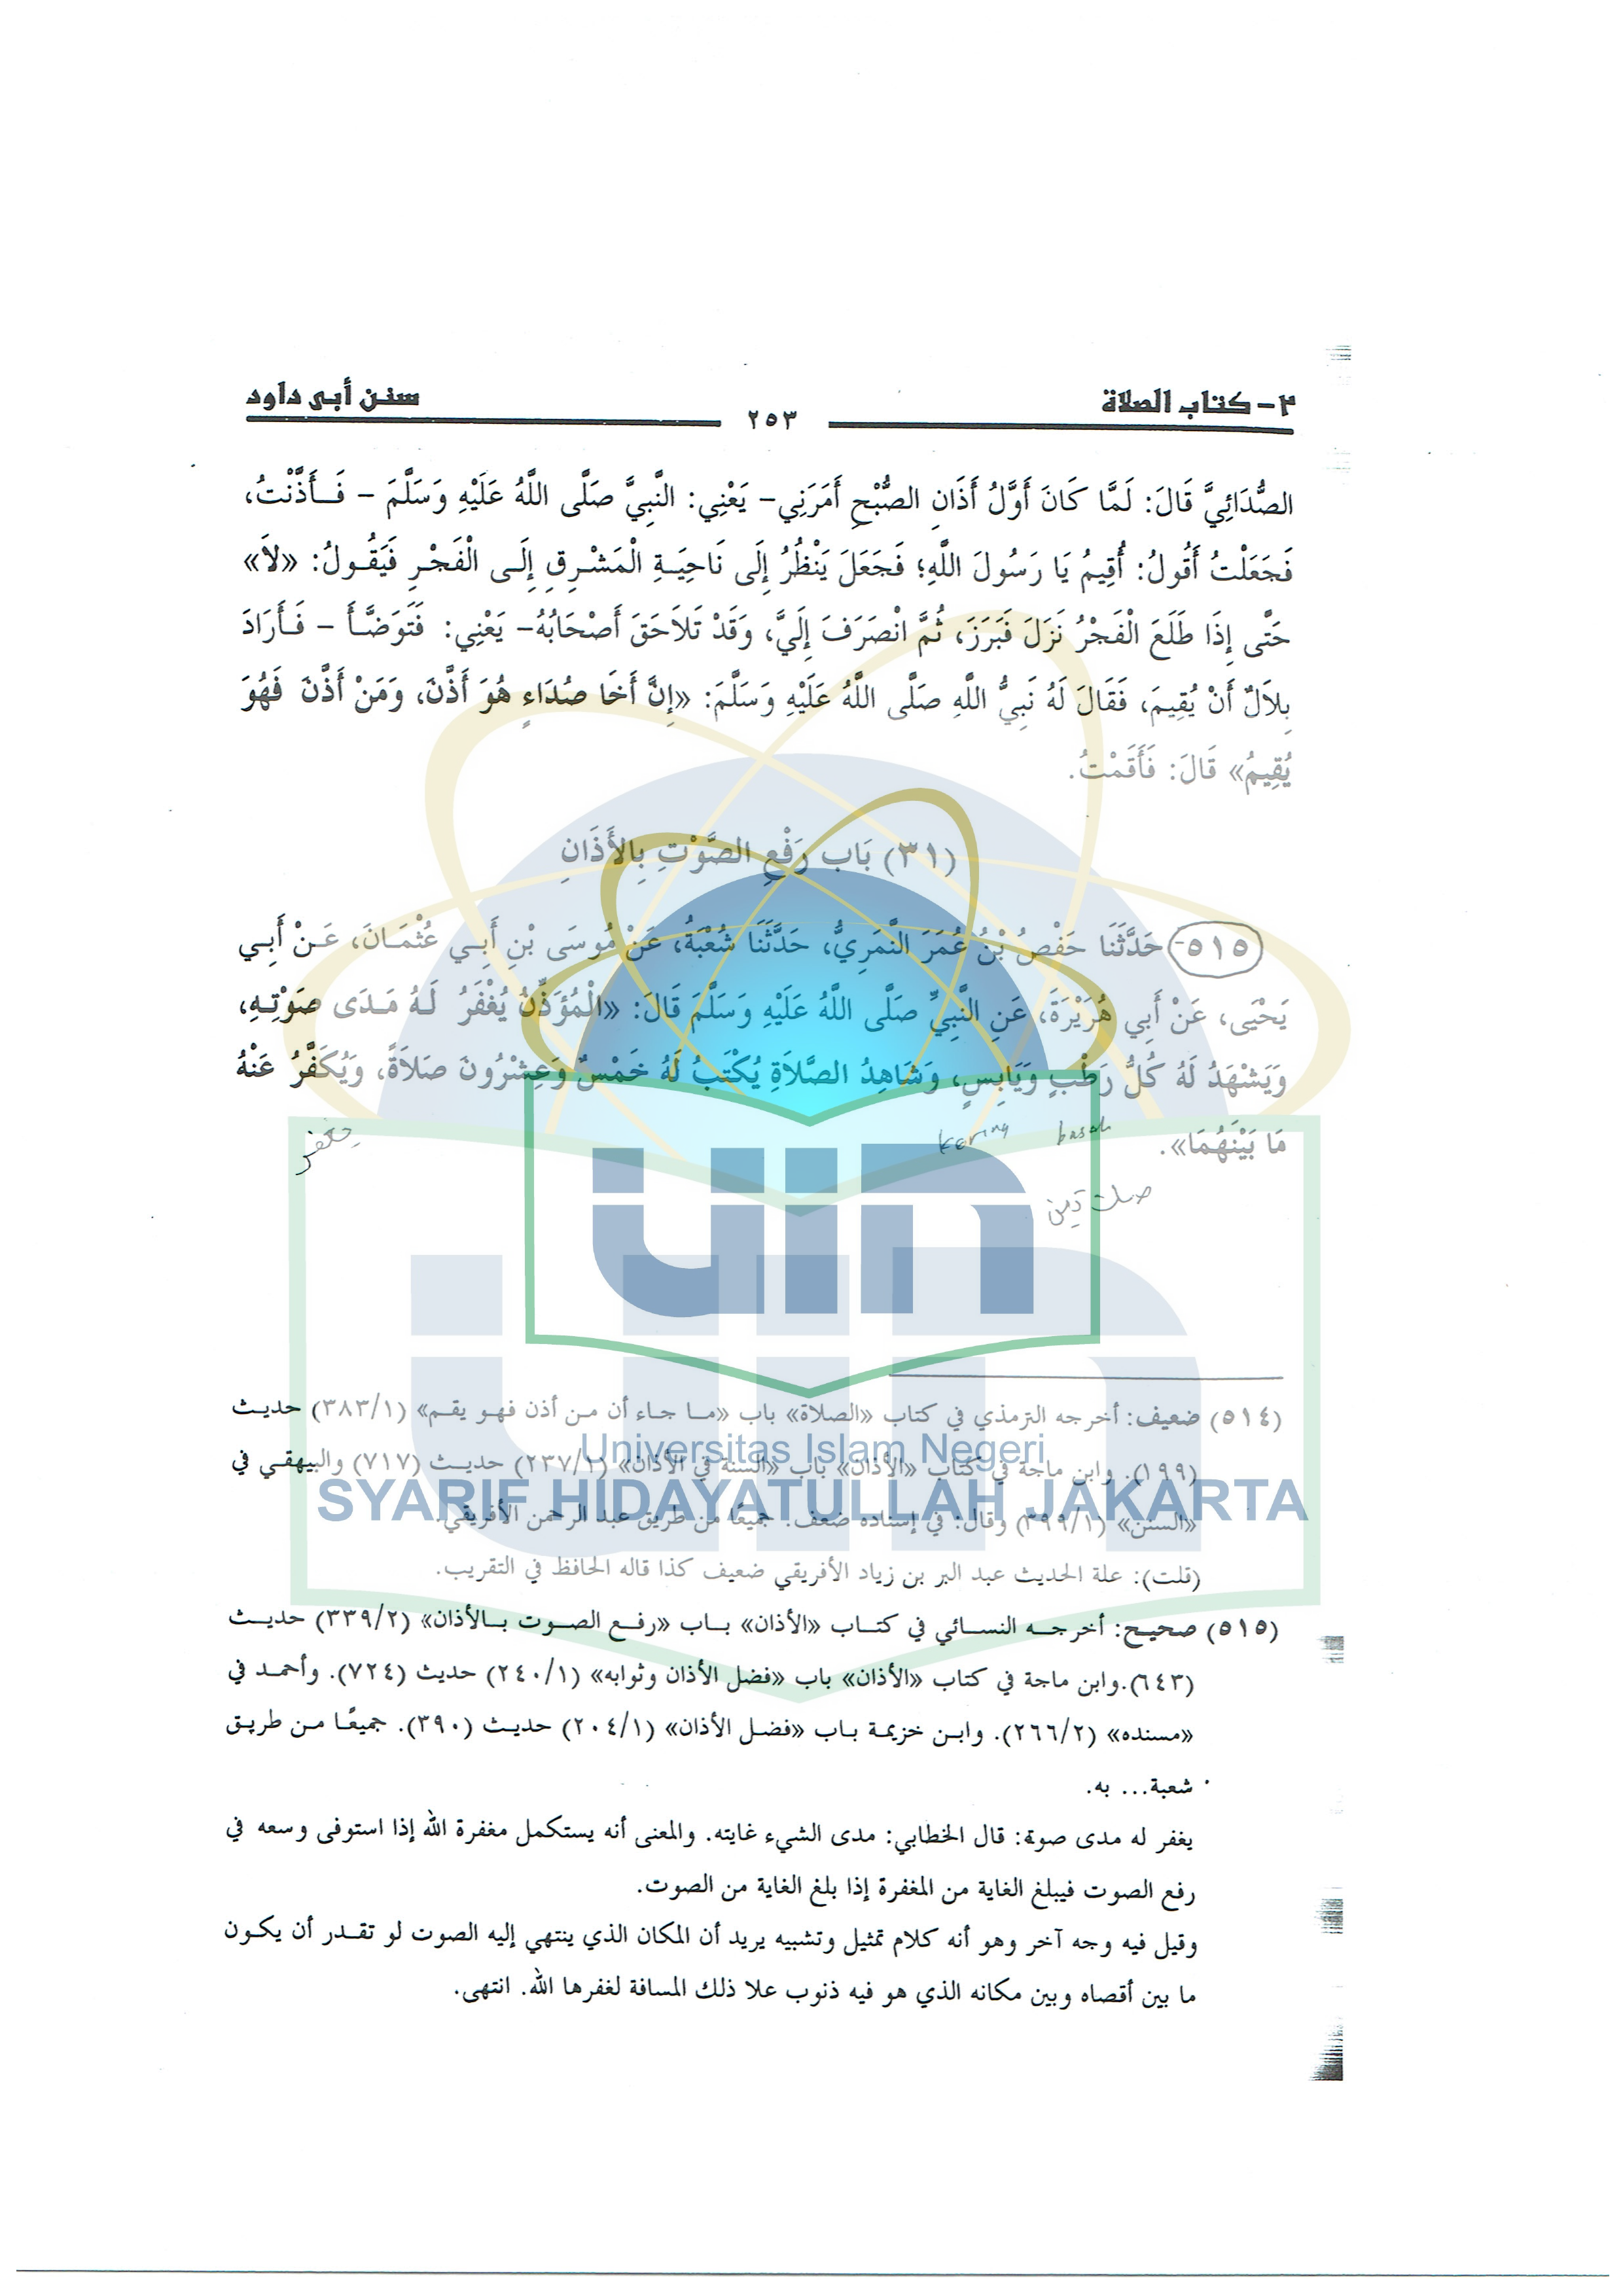 ٢- كتاب الصلاة
٢٥٣
سنن أبى داود
الصُّدَائِيَّ قَالَ: لَمَّا كَانَ أَوَّلُ أَذَانِ الصُّبْحِ أَمَرَنِي- يَعْنِي: النَّبِيَّ صَلَّى اللَّهُ عَلَيْهِ وَسَلَّمَ - فَأَذَّنْتُ،
فَجَعَلْتُ أَقُولُ: أُقِيمُ يَا رَسُولَ اللَّهِ؛ فَجَعَلَ يَنْظُرُ إِلَى نَاحِيَةِ الْمَشْرِقِ إِلَى الْفَجْرِ فَيَقُولُ: «لاَ»
حَتَّى إِذَا طَلَعَ الْفَجْرُ نَزَلَ فَبَرَزَ، ثُمَّ انْصَرَفَ إِلَيَّ، وَقَدْ تَلاَحَقَ أَصْحَابُهُ- يَعْنِي: فَتَوَضَّأَ - فَأَرَادَ
بِلاَلٌ أَنْ يُقِيمَ، فَقَالَ لَهُ نَبِيُّ اللَّهِ صَلَّى اللَّهُ عَلَيْهِ وَسَلَّمَ: «إِنَّ أَخَا صُدَاءٍ هُوَ أَذَّنَ، وَمَنْ أَذَّنَ فَهُوَ
يُقِيمُ» قَالَ: فَأَقَمْتُ.
(٣١) بَاب رَفْعِ الصَّوْتِ بِالأَذَانِ
٥١٥- حَدَّثَنَا حَفْصُ بْنُ عُمَرَ النَّمَرِيُّ، حَدَّثَنَا شُعْبَةُ، عَنْ مُوسَى بْنِ أَبِي عُثْمَانَ، عَنْ أَبِي
يَحْيَى، عَنْ أَبِي هُرَيْرَةَ، عَنِ النَّبِيِّ صَلَّى اللَّهُ عَلَيْهِ وَسَلَّمَ قَالَ: «الْمُؤَذِّنُ يُغْفَرُ لَهُ مَدَى صَوْتِهِ،
وَيَشْهَدُ لَهُ كُلُّ رَطْبٍ وَيَابِسٍ، وَشَاهِدُ الصَّلاَةِ يُكْتَبُ لَهُ خَمْسٌ وَعِشْرُونَ صَلاَةً، وَيُكَفَّرُ عَنْهُ
مَا بَيْنَهُمَا».
basah kering
uin
(٥١٤) ضعيف: أخرجه الترمذي في كتاب «الصلاة» باب «ما جاء أن من أذن فهو يقم» (٣٨٣/١) حديث
(١٩٩). وابن ماجة في كتاب «الأذان» باب «السنة في الأذان» (٢٣٧/١) حديث (٧١٧) والبيهقي في
Universitas Islam Negeri
SYARIF HIDAYATULLAH JAKARTA
«السنن» (٣٩٩/١) وقال: في إسناده ضعف. جميعًا من طريق عبد الرحمن الأفريقي.
(قلت): علة الحديث عبد البر بن زياد الأفريقي ضعيف كذا قاله الحافظ في التقريب.
(٥١٥) صحيح: أخرجه النسائي في كتاب «الأذان» باب «رفع الصوت بالأذان» (٣٣٩/٢) حديث
(٦٤٣).وابن ماجة في كتاب «الأذان» باب «فضل الأذان وثوابه» (٢٤٠/١) حديث (٧٢٤). وأحمد في
«مسنده» (٢٦٦/٢). وابن خزيمة باب «فضل الأذان» (٢٠٤/١) حديث (٣٩٠). جميعًا من طريق
شعبة... به.
يغفر له مدى صوة: قال الخطابي: مدى الشيء غايته. والمعنى أنه يستكمل مغفرة الله إذا استوفى وسعه في
رفع الصوت فيبلغ الغاية من المغفرة إذا بلغ الغاية من الصوت.
وقيل فيه وجه آخر وهو أنه كلام تمثيل وتشبيه يريد أن المكان الذي ينتهي إليه الصوت لو تقدر أن يكون
ما بين أقصاه وبين مكانه الذي هو فيه ذنوب علا ذلك المسافة لغفرها الله. انتهى.